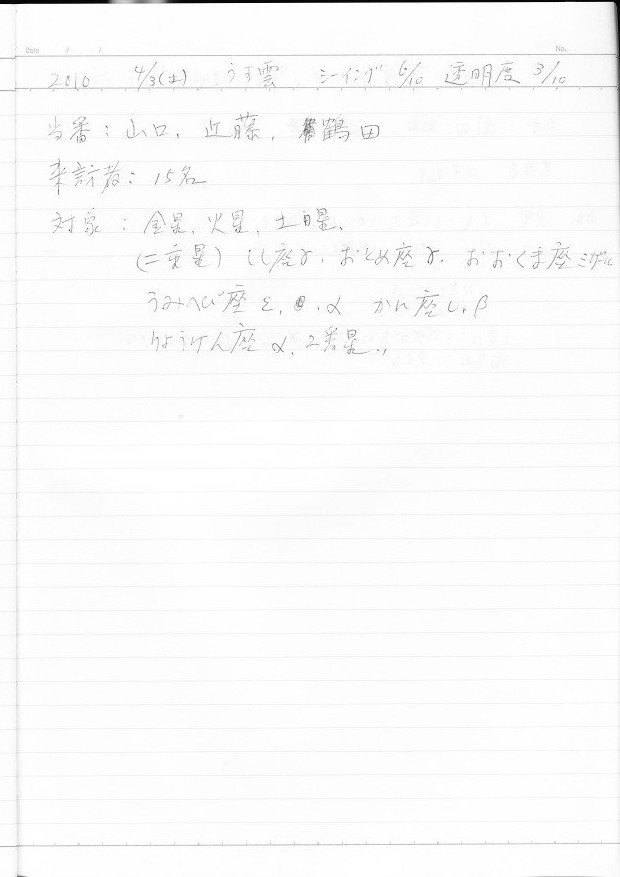 Date / / No.
2010 4/3(土) うす雲 シーイング 6/10 透明度 3/10
当番：山口、近藤、鶴田
来訪者：15名
対象：金星、火星、土星、
(二重星) しし座γ、おとめ座γ、おおくま座ミザール
うみへび座 ε、α かに座 ι、β
りょうけん座 α、2番星、